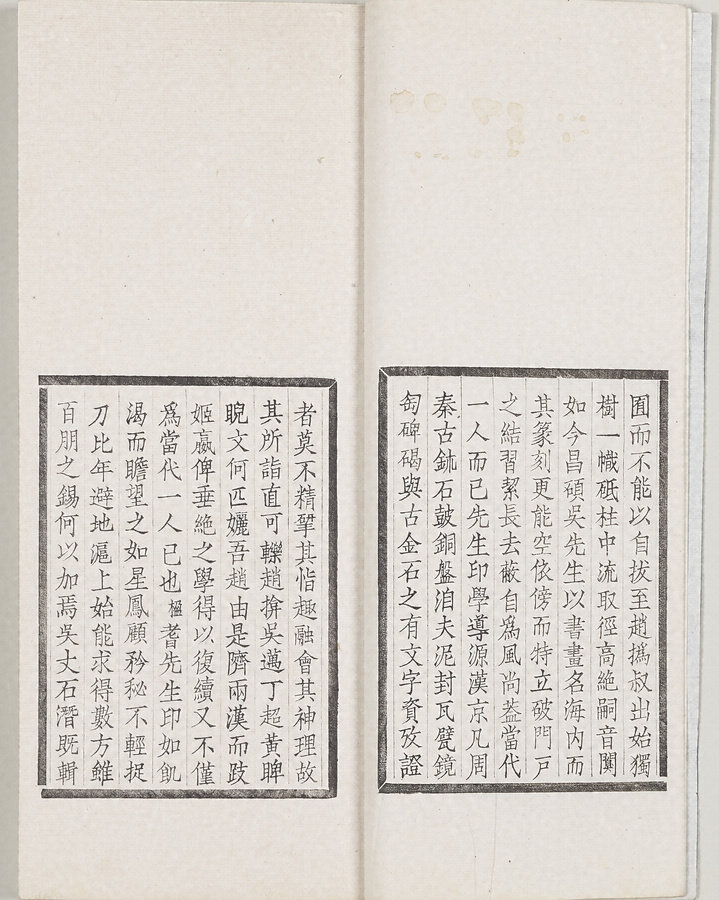 囿而不能以自拔至趙撝叔出始獨
樹一幟砥柱中流取徑高絶嗣音闃
如今昌碩吳先生以書畫名海内而
其篆刻更能空依傍而特立破門戸
之結習絜長去蔽自爲風尚葢當代
一人而已先生印學導源漢京凡周
秦古鉥石鼓銅盤洎夫泥封瓦甓鏡
匋碑碣與古金石之有文字資攷證
者莫不精揅其恉趣融會其神理故
其所詣直可轢趙揜吳邁丁超黃睥
睨文何匹孋吾趙由是隮兩漢而跂
姬嬴俾垂絶之學得以復續又不僅
爲當代一人已也楹耆先生印如飢
渴而瞻望之如星鳳顧矜秘不輕捉
刀比年避地滬上始能求得數方雖
百朋之錫何以加焉吳丈石潛既輯